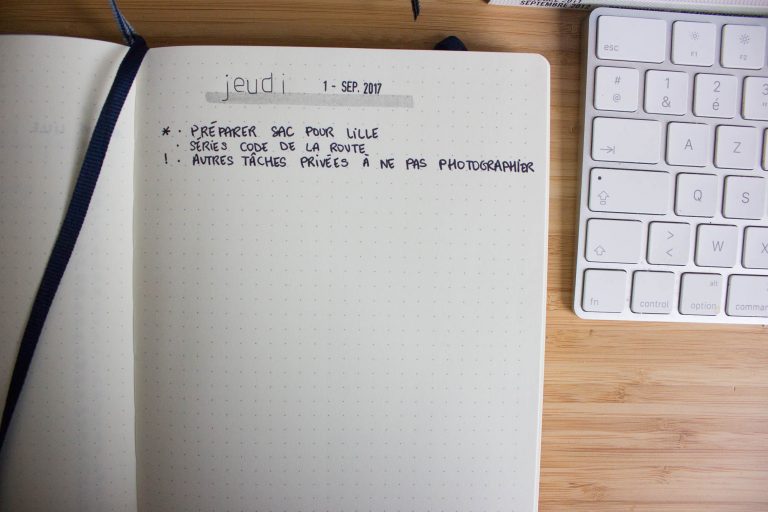 SEPTEMBRE 2017
jeudi 1 - SEP. 2017
* · PRÉPARER SAC POUR LILLE
· SÉRIES CODE DE LA ROUTE
! · AUTRES TÂCHES PRIVÉES À NE PAS PHOTOGRAPHIER
esc F1 F2
# @ 1 & 2 é 3
A Z
Q S
> < W X
fn control alt option command